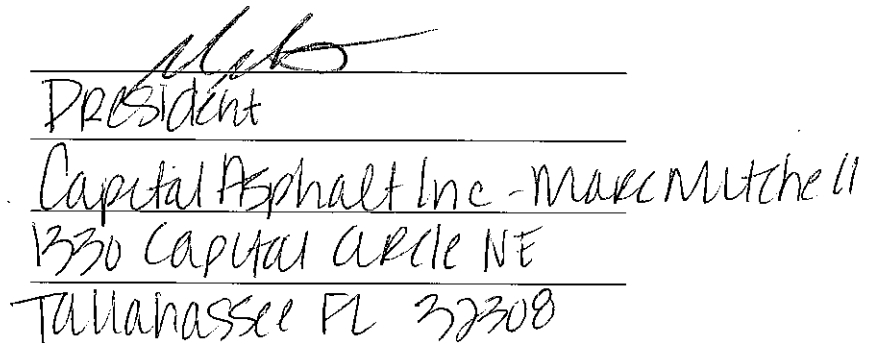 President
Capital Asphalt Inc - Marc Mitchell
1330 Capital Circle NE
Tallahassee FL 32308